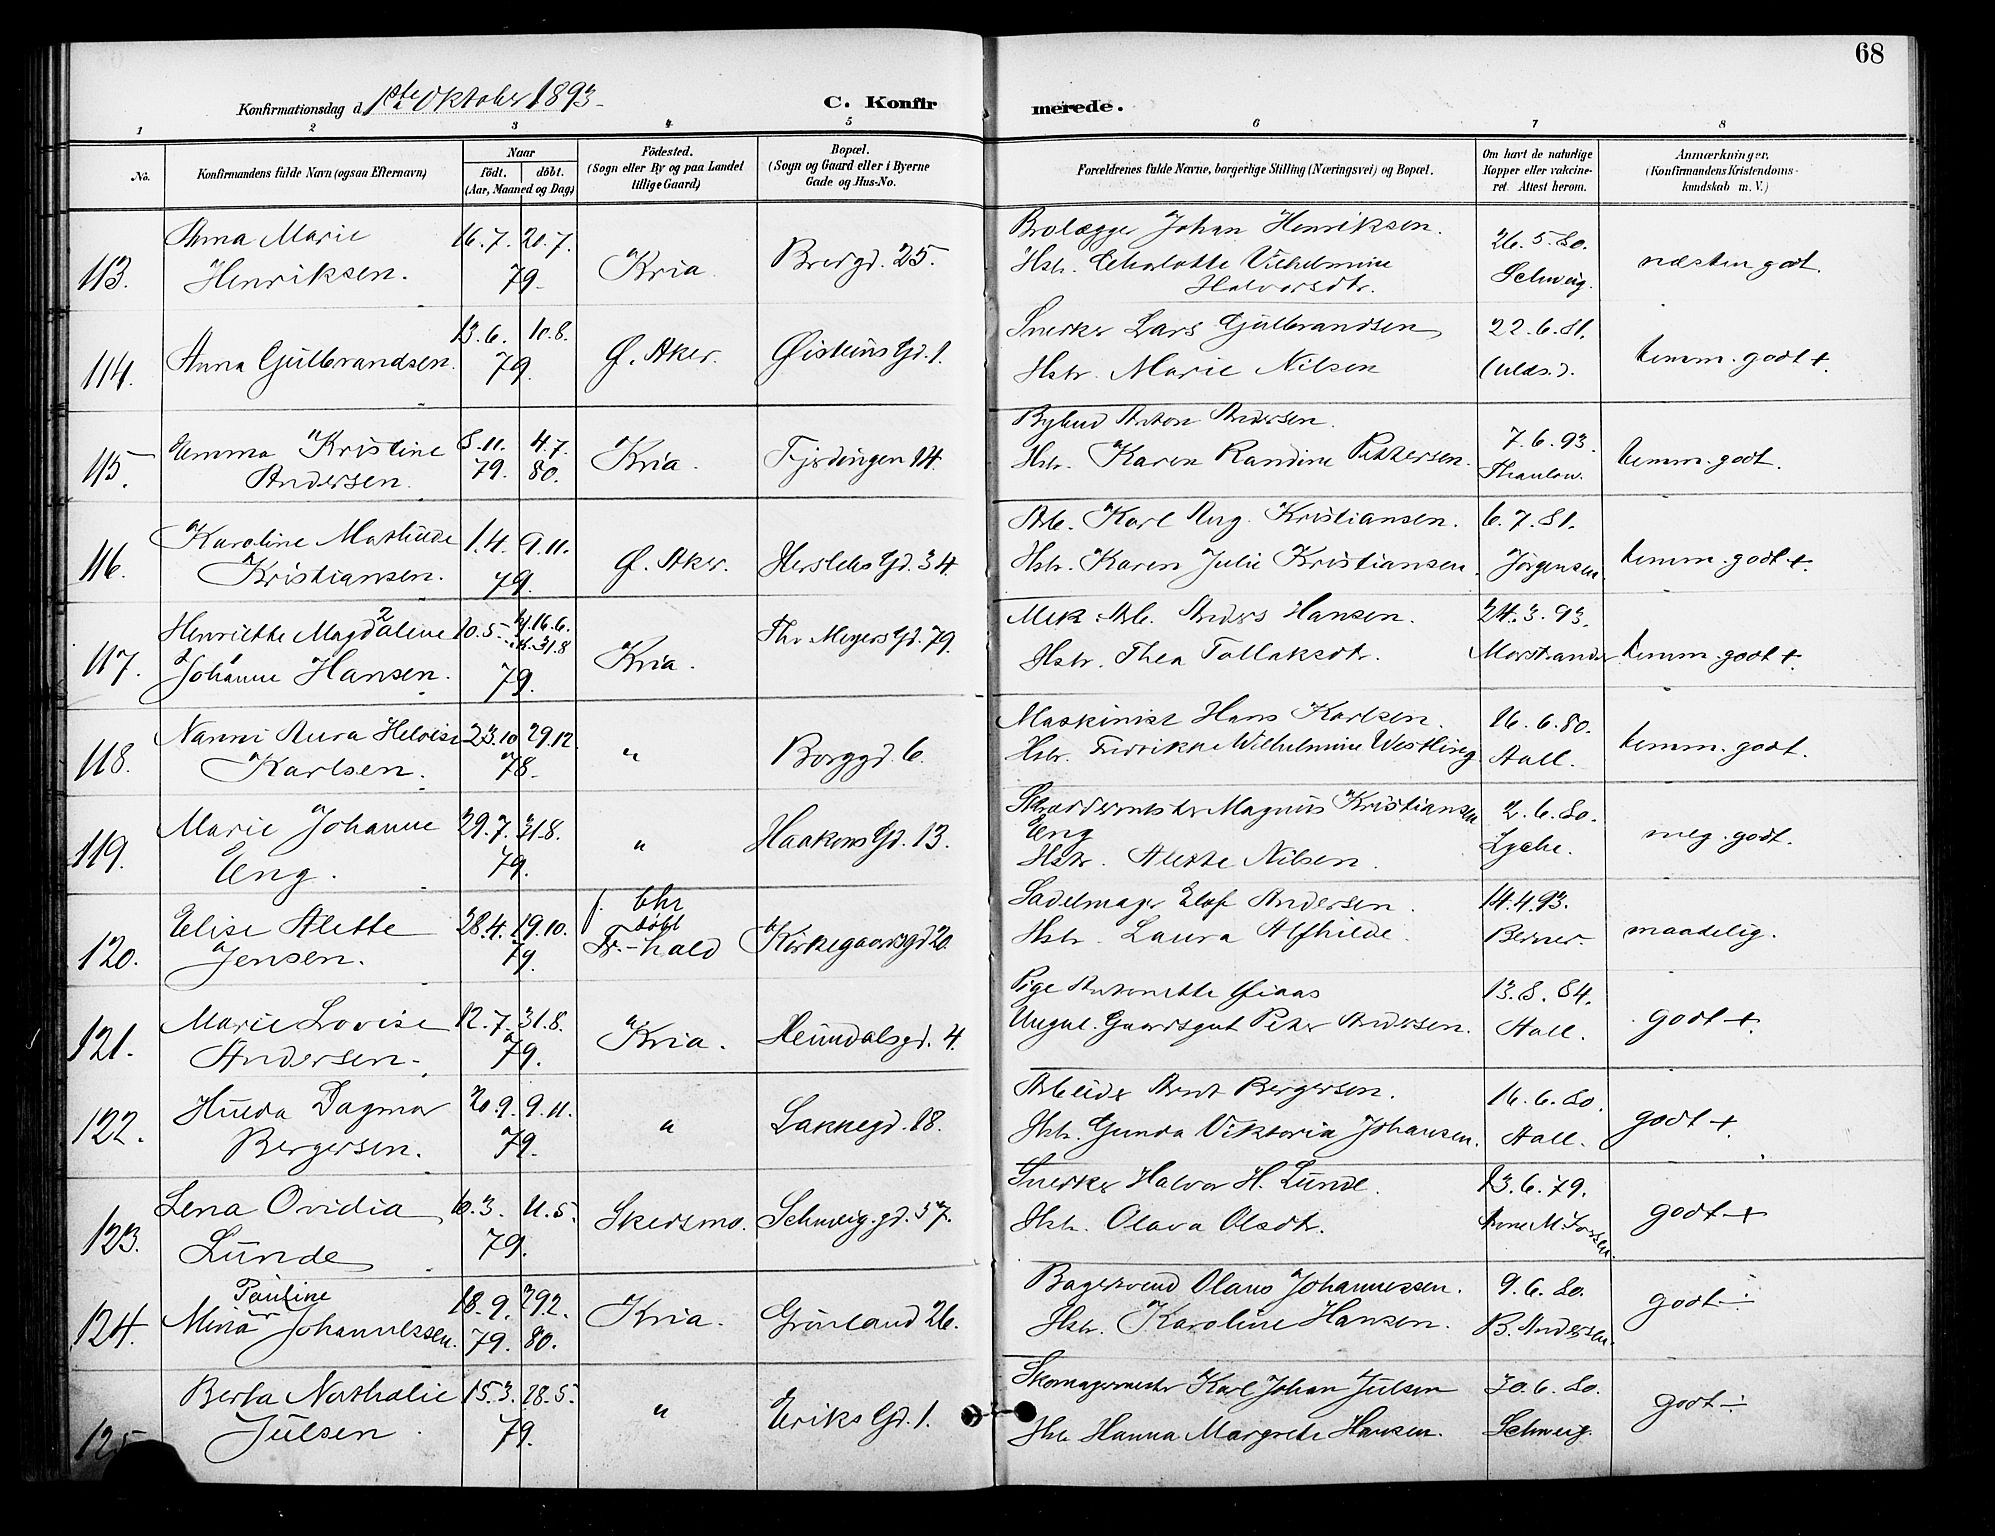 68
Konfirmationsdag d. 1ste Oktober 1893
C. Konfir
merede.
1 2 3 4 5 6 7 8
No.
Konfirmandens fulde Navn (ogsaa Efternavn)
Naar
födt. döbt.
(Aar, Maaned og Dag)
Födested.
(Sogn eller By og paa Landet
tillige Gaard)
Bopæl.
(Sogn og Gaard eller i Byerne
Gade og Hus-No.
Forældrenes fulde Navne, borgerlige Stilling (Næringsvei) og Bopæl.
Om havt de naturlige
Kopper eller vakcine-
ret. Attest herom.
Anmærkninger.
(Konfirmandens Kristendoms-
kundskab m. V.)
113. Anna Marie
Henriksen.
16.7. 20.7.
79.
Kria.
Bredgd. 25.
Brolægge Johan Henriksen.
Hstr. Charlotte Vilhelmine
Halvorsdtr.
26.5.80.
Schweig.
næsten godt.
114. Anna Gulbrandsen.
13.6. 10.8.
79.
Ø. Aker.
Øisteins Gd. 1.
Snerker Lars Gulbrandsen
Hstr. Marie Nilsen
22.6.81.
temm. godt +.
115. Emma Kristine
Andersen.
8.11. 4.7.
79. 80.
Kria.
Fjerdingen 14.
Bybud Anton Andersen.
Hstr. Karen Randine Pettersen.
7.6.93.
Thaulow.
temm. godt.
116. Karoline Mathilde
Kristiansen.
1.4. 9.11.
79.
Ø. Aker.
Herslebs Gd. 34.
Arb. Karl Aug. Kristiansen.
Hstr. Karen Julie Kristiansen.
6.7.81.
Jörgensen
temm. godt +.
117. Henriette Magdalene
Johanne Hansen.
10.5. 16.6.
31.8
79.
Kria.
Thv Meyers Gd. 79.
Mek. Arb. Anders Hansen.
Hstr. Thea Tollaksdtr.
24.3.93.
temm. godt +.
118. Nanni Aura Heloise
Karlsen.
23.10 29.12.
78.
"
Borggd. 6.
Maskinist Hans Karlsen.
Hstr. Fredrikke Wilhelmine Westling
16.6.80.
Aall.
temm. godt.
119. Marie Johanne
Eng.
29.7. 31.8.
79.
"
Haakons Gd. 13.
Skræddermester Magnus Kristiansen
Eng
Hstr. Alette Nilsen.
2.6.80.
Lyche.
meg. godt.
120. Elise Alette
Jensen.
28.4. 19.10.
79.
f. Chr
döbt
Fr.-hald
Kirkegaardsgd 20.
Sadelmager Elof Andersen.
Hstr. Laura Alfhilde.
14.4.93.
Berner.
maadelig.
121. Marie Lovise
Andersen.
12.7. 31.8.
79.
Kria.
Heimdalsgd. 4.
Pige Antonette
Ungkl. Gaardsgut Peter Andersen.
13.8.84.
Aall.
godt +.
122. Hulda Dagmar
Bergersen.
20.9. 9.11.
79.
"
Lakkegd. 18.
Arbeider Arnt Bergersen.
Hstr. Gunda Viktoria Johansen.
16.6.80.
Aall.
godt +.
123. Lena Ovidia
Lunde
6.3. 11.5.
79.
Skedsmo.
Schweig. gd. 57.
Snerker Halvor H. Lunde.
Hstr. Olava Olsdtr.
13.6.79.
godt +
124. Pauline
Mina Johannessen.
18.9. 29.2.
79. 80.
Kria.
Grönland 26.
Bagersvend Olaus Johannessen.
Hstr. Karoline Hansen.
9.6.80.
B. Andersen.
godt ÷
125. Berta Nathalie
Julsen.
15.3. 28.5.
79.
"
Eriks Gd. 1.
Skomagermester Karl Johan Julsen
Hstr Hanna Margrete Hansen.
30.6.80.
Schweig.
godt ÷